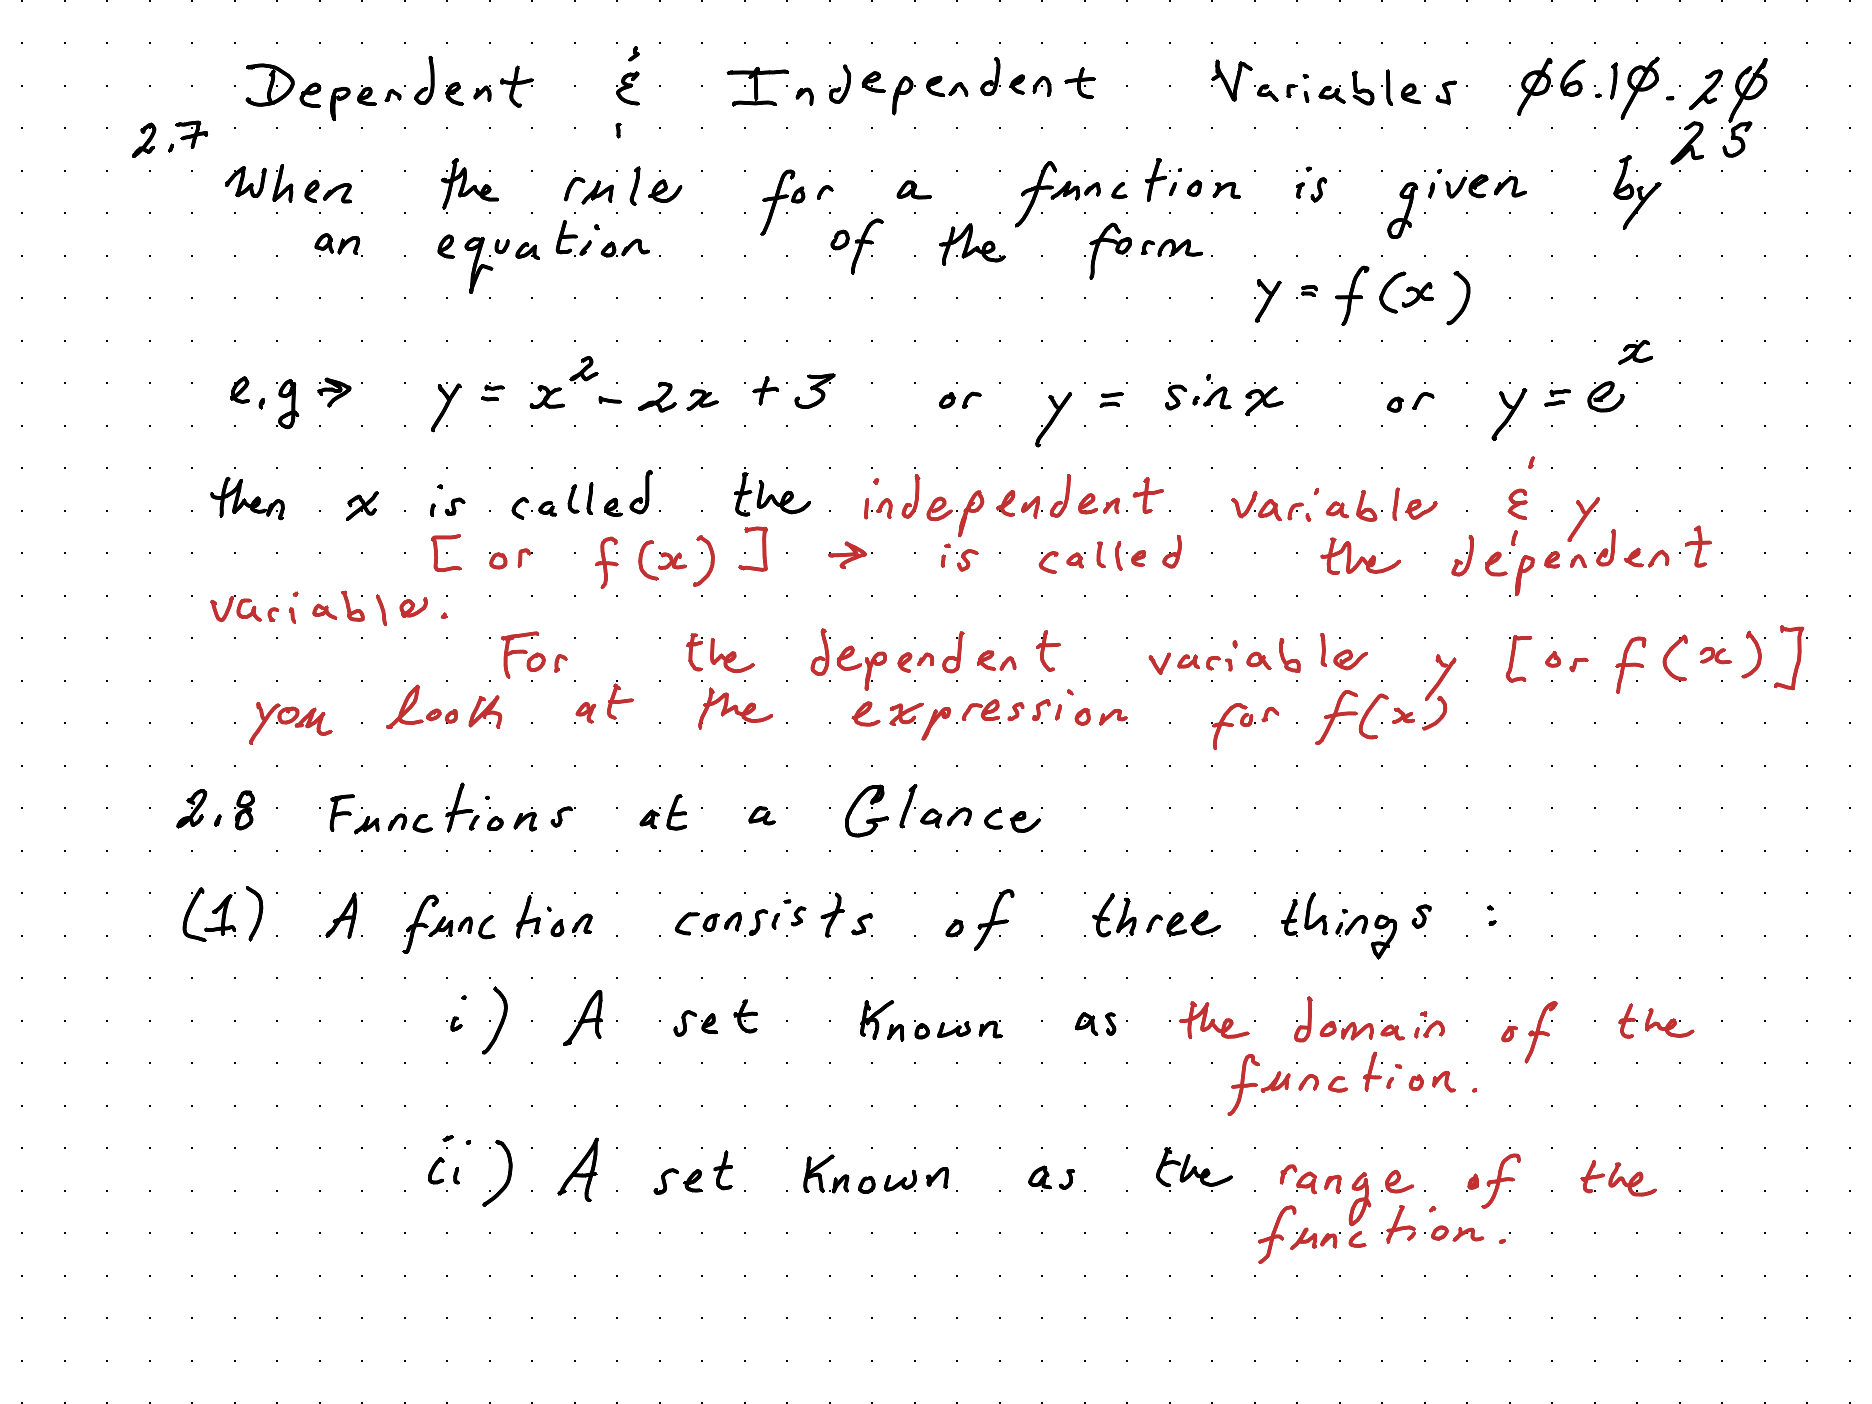 Dependent & Independent Variables 06.10.20
25
2.7
When the rule for a function is given by
an equation of the form
y = f(x)
e.g → y = x² - 2x + 3 or y = sinx or y = eˣ
then x is called the independent variable & y
[or f(x)] → is called the dependent
variable.
For the dependent variable y [or f(x)]
you look at the expression for f(x)
2.8 Functions at a Glance
(1) A function consists of three things :
i) A set known as the domain of the
function.
ii) A set known as the range of the
function.